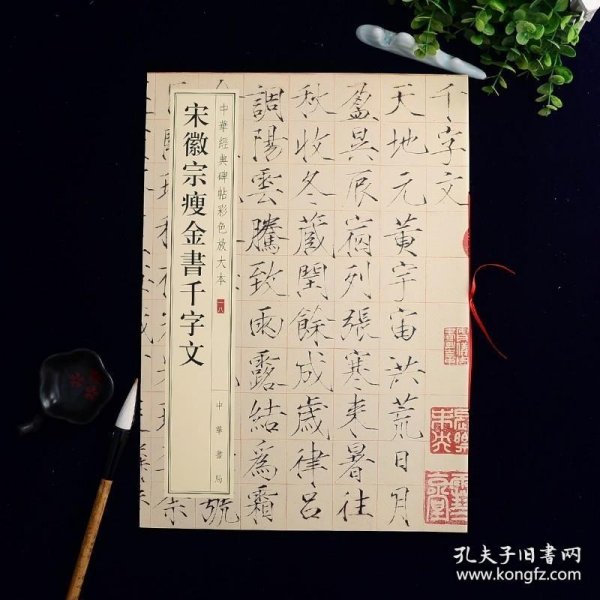 宋徽宗瘦金書千字文
中華經典碑帖彩色放大本
一八
中華書局
千字文
天地元黄宇宙洪荒日月
盈昃辰宿列張寒来暑往
秋收冬蔵閏餘成歲律吕
調陽雲騰致雨露結爲霜
號
孔夫子旧书网
www.kongfz.com